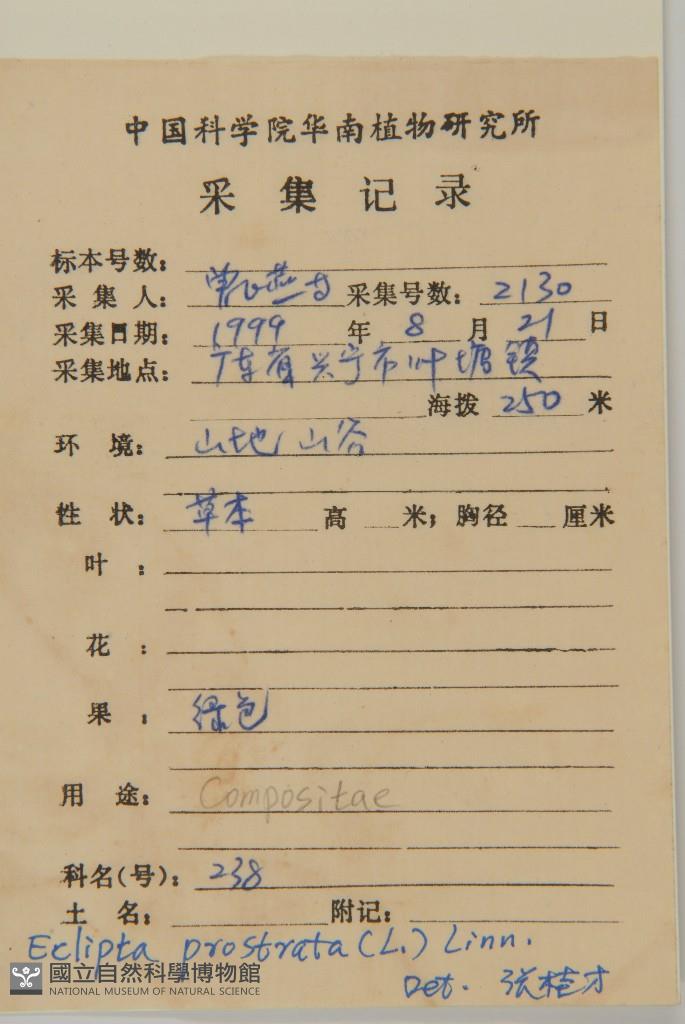 中国科学院华南植物研究所
采集记录
标本号数：
采集人： 采集号数： 2130
采集日期： 1999 年 8 月 21 日
采集地点： 广东省兴宁市叶塘镇
海拨 250 米
环境： 山地 山谷
性状： 草本 高 米； 胸径 厘米
叶：
花：
果： 绿色
用途： Compositae
科名(号)： 238
土名： 附记：
Eclipta prostrata (L.) Linn.
Det. 张桂才
國立自然科學博物館
NATIONAL MUSEUM OF NATURAL SCIENCE